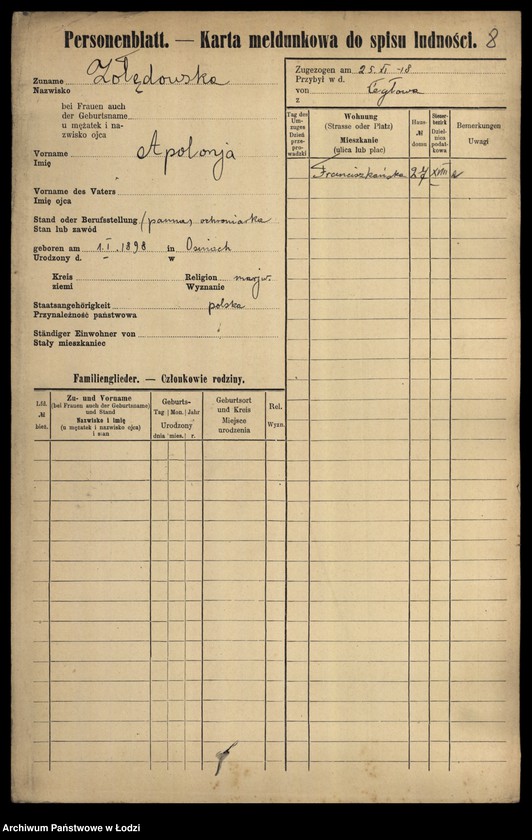 Personenblatt. — Karta meldunkowa do spisu ludności. 8
Zuname Żołędowska
Nazwisko
bei Frauen auch
der Geburtsname
u mężatek i na-
zwisko ojca
Vorname Apolonja
Imię
Vorname des Vaters
Imię ojca
Stand oder Berufsstellung (panna) ochroniarka
Stan lub zawód
geboren am 1.I.1898 in Osniach
Urodzony d. — w
Kreis Religion marjw.
ziemi Wyznanie
Staatsangehörigkeit polska
Przynależność państwowa
Ständiger Einwohner von
Stały mieszkaniec
Zugezogen am 25. VI -18
Przybył w d.
von Łęgłowa
z
Tag des
Um-
zuges
Dzień
prze-
prowadzki
Wohnung
(Strasse oder Platz)
Mieszkanie
(ulica lub plac)
Haus-
№
domu
Steuer-
bezirk
Dziel-
nica
podat-
kowa
Bemerkungen
Uwagi
Franciszkańska 27 XVIII
Familienglieder. — Członkowie rodziny.
Lfd.
№
bież.
Zu- und Vorname
(bei Frauen auch der Geburtsname)
und Stand
Nazwisko i imię
(u mężatek i nazwisko ojca)
i stan
Geburts-
Tag Mon. Jahr
Urodzony
dnia mies. r.
Geburtsort
und Kreis
Miejsce
urodzenia
Rel.
Wyzn.
Archiwum Państwowe w Łodzi